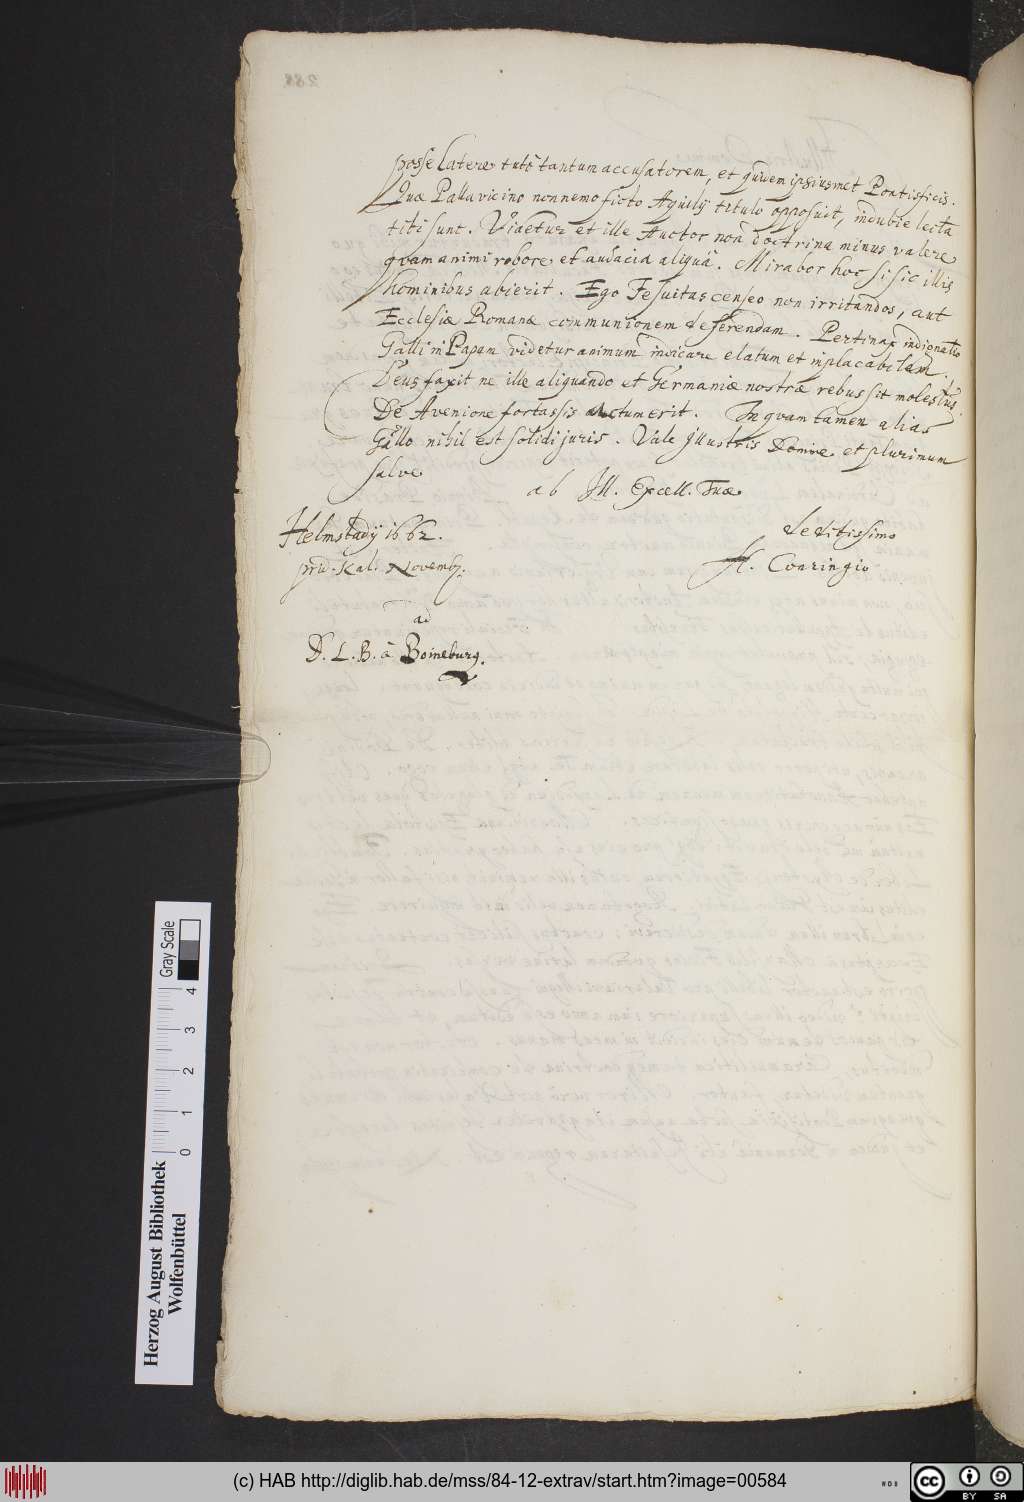 posse latere tutò tantum accusatorem, et quidem ipsiusmet Pontificis.
Quæ Pallavicino nonnemo ficto Aquilij titulo opposuit, indubie lecta
tibi sunt. Videtur et ille Auctor non doctrina minus valere
quam animi robore et audacia aliquâ. Mirabor hoc si sic illis
hominibus abierit. Ego Jesuitas censeo non irritandos, aut
Ecclesiæ Romanæ communionem deserendam. Pertinax indignatio
Galli in Papam videtur animum indicare elatum et inplacabilem.
Deus faxit ne ille aliquando et Germaniæ nostræ rebus sit molestus.
De Avenione fortassis actum erit. In quam tamen alias
Gallo nihil est solidi juris. Vale Illustris Domine et plurimum
salve
ab Ill. Excell. Tuæ
Helmstadij 1662.
deditissimo
prid. Kal. Novemb.
H. Conringio
ad
D. L. B. à Boineburg.
Gray Scale
0 1 2 3 4
Herzog August Bibliothek
Wolfenbüttel
(c) HAB http://diglib.hab.de/mss/84-12-extrav/start.htm?image=00584
WDB
cc BY SA